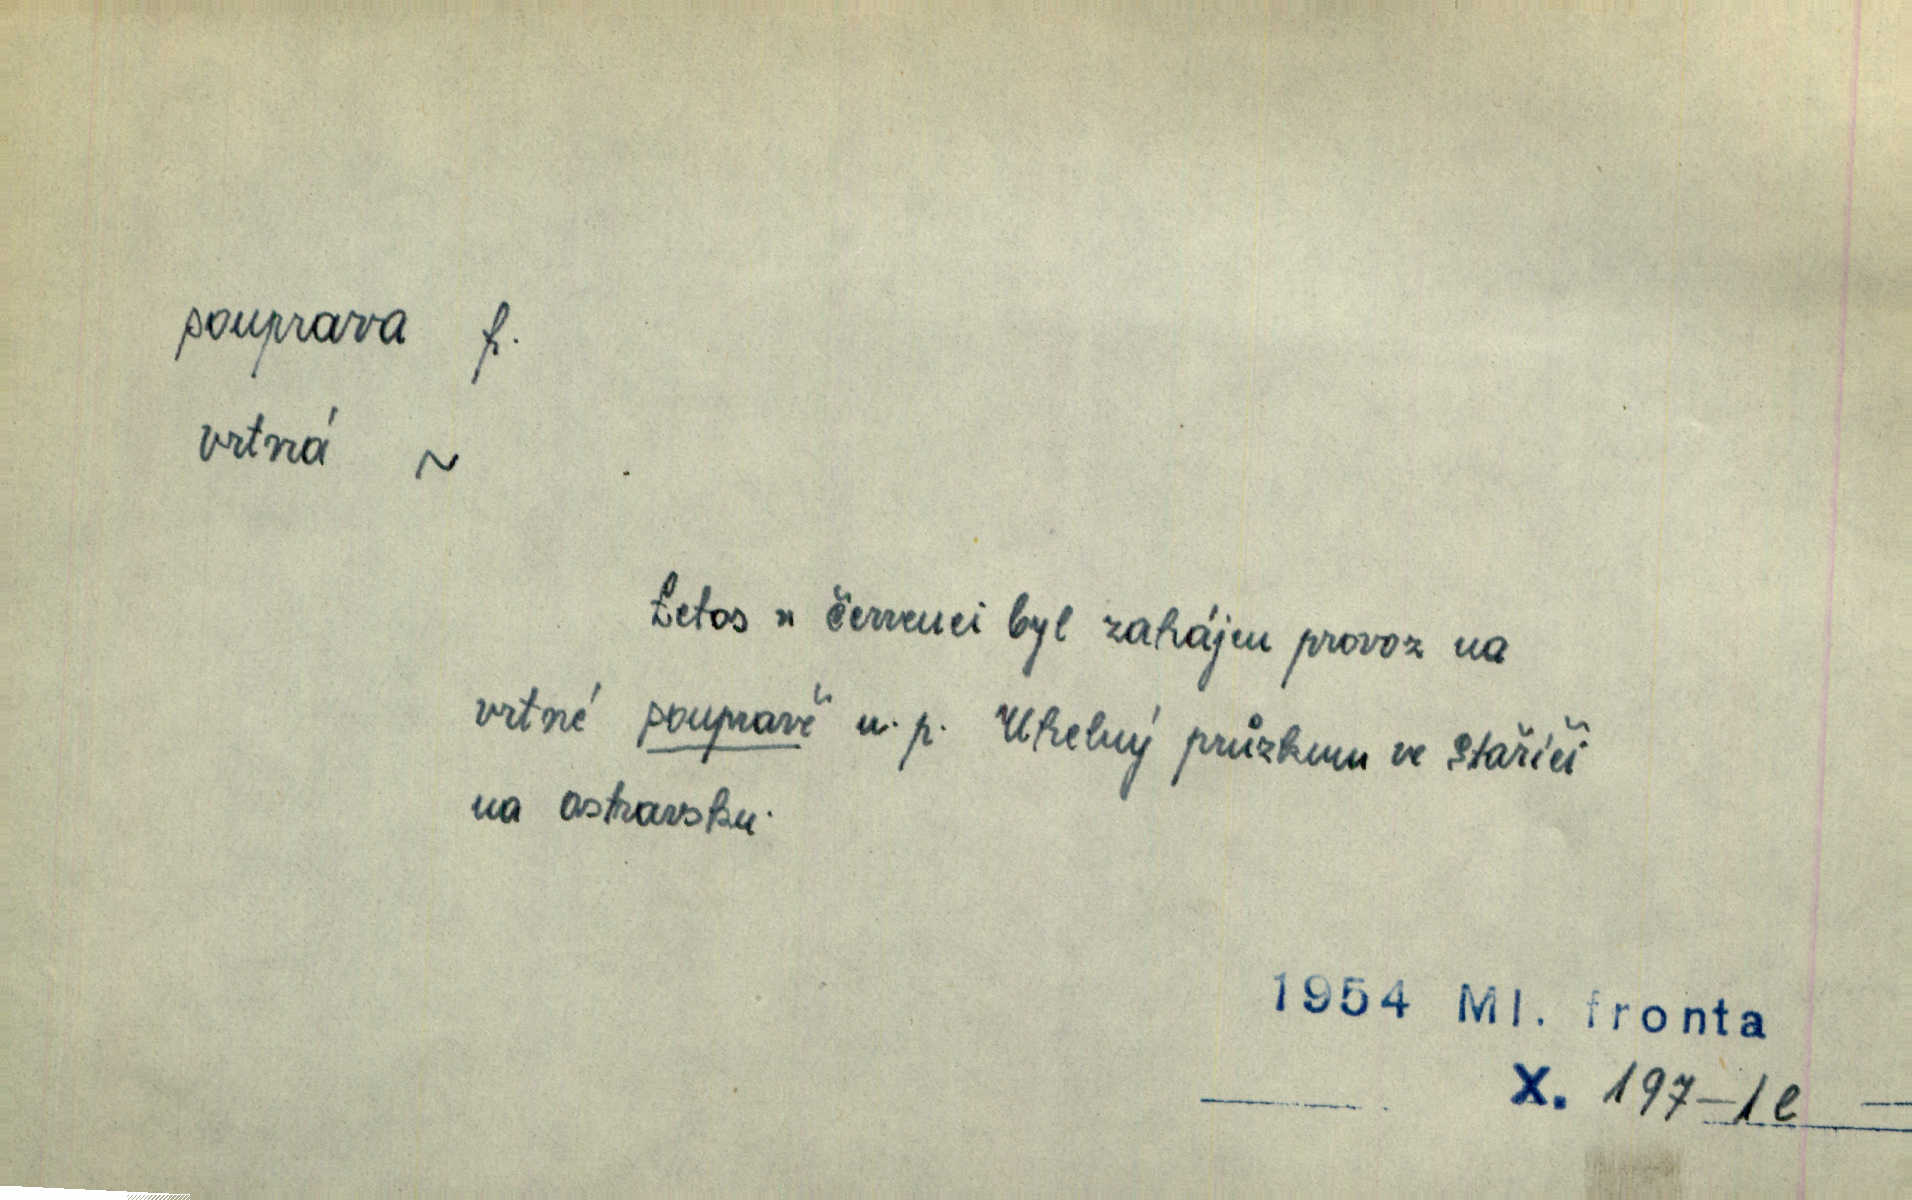 souprava f.
vrtná ~
Letos v červenci byl zahájen provoz na
vrtné soupravě n. p. Uhelný průzkum ve Staříči
na Ostravsku.
1954 Ml. fronta
X. 197-1e